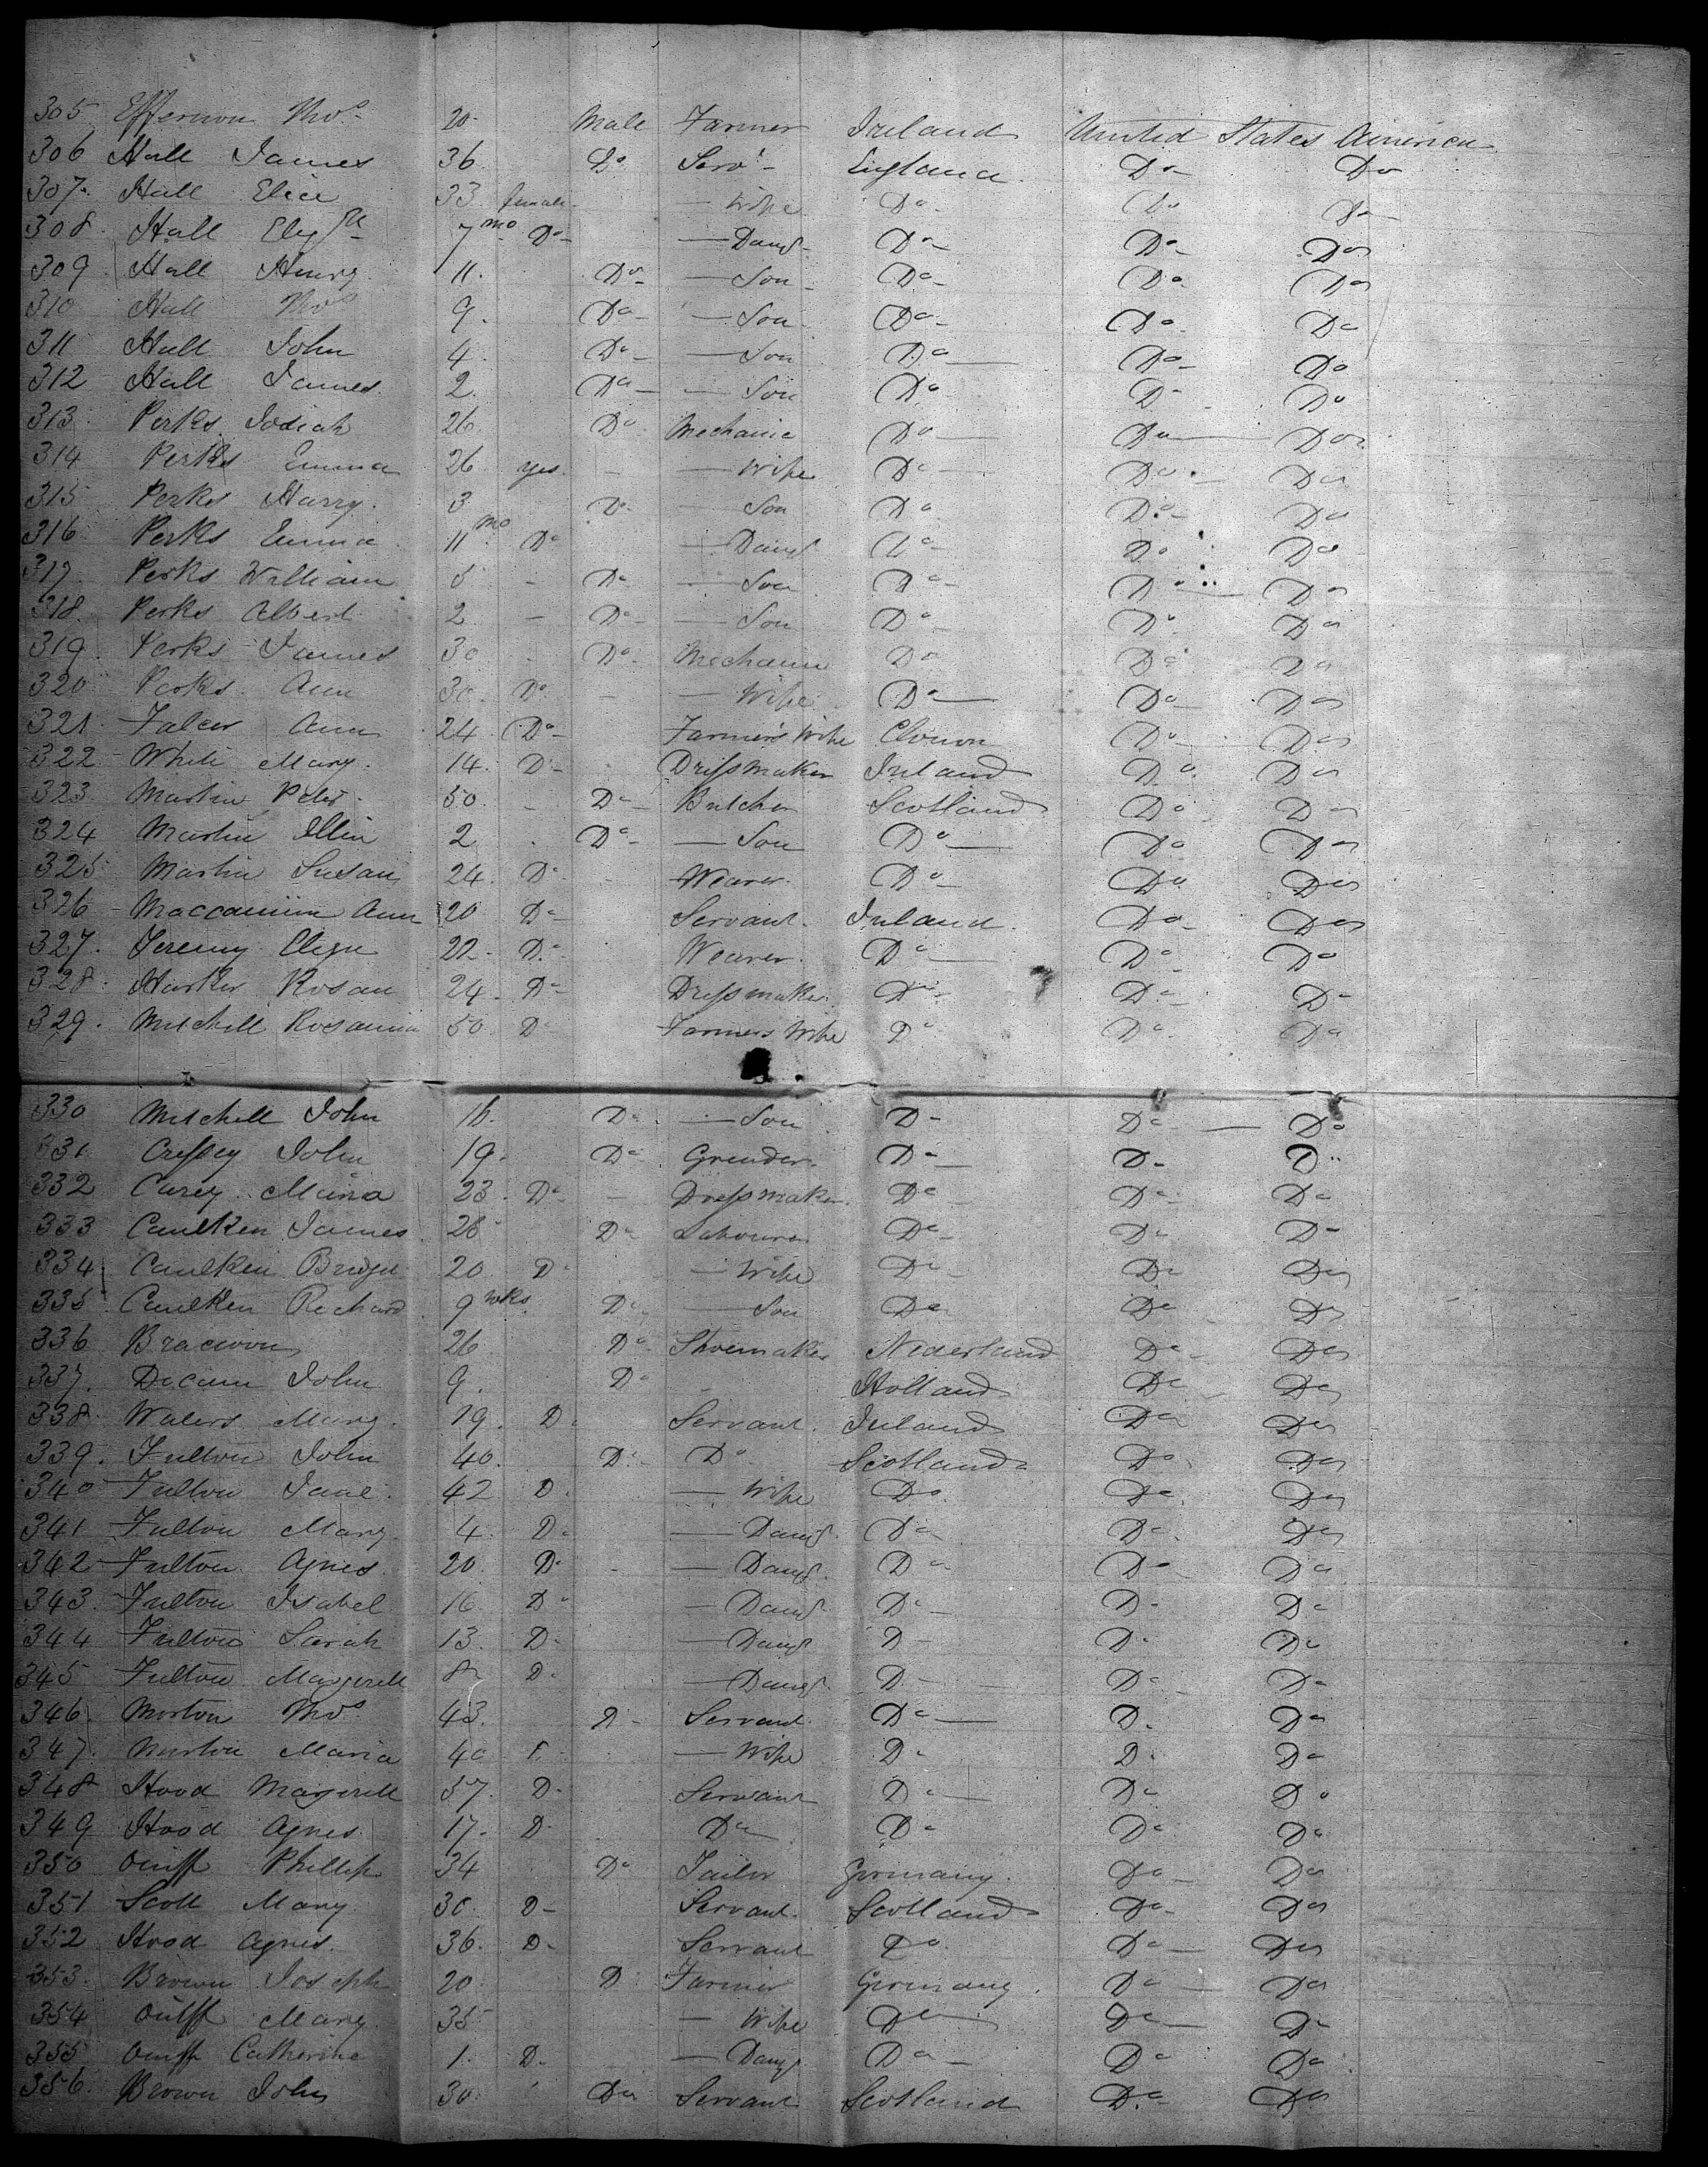 305 Effernon Thos. 20 Male Farmer Ireland United States America
306 Hall James 36 Do Servt England Do Do
307 Hall Elice 33 female Wife Do Do Do
308 Hall 7 mo Do Daug Do Do Do
309 Hall Henry 11 Do Son Do Do Do
310 Hall Thos 9 Do Son Do Do Do
311 Hall John 4 Do Son Do Do Do
312 Hall James 2 Do Son Do Do Do
313 Perks Josiah 26 Do Mechanic Do Do Do
314 Perks Emma 26 yes Wife Do Do Do
315 Perks Harry 3 Do Son Do Do Do
316 Perks Emma 11 mo Do Daug Do Do Do
317 Perks William 5 Do Son Do Do Do
318 Perks Albert 2 Do Son Do Do Do
319 Perks James 30 Do Mechanic Do Do Do
320 Perks Ann 30 Do Wife Do Do Do
321 Ann 24 Do Farmers Wife Do Do
322 White Mary 14 Do Dressmaker Ireland Do Do
323 Martin Peter 50 Do Butcher Scotland Do Do
324 Martin 2 Do Son Do Do Do
325 Martin Susan 24 Do Weaver Do Do Do
326 Ann 20 Do Servant Ireland Do Do
327 Jeremy 22 Do Weaver Do Do Do
328 Harker Rosan 24 Do Dressmaker Do Do Do
329 Mitchell Rosanna 50 Do Farmers Wife Do Do Do
330 Mitchell John 16 Do Son Do Do Do
331 Cressey John 19 Do Grinder Do Do Do
332 Carey Maria 23 Do Dressmaker Do Do Do
333 Caulken James 26 Do Labourer Do Do Do
334 Caulken Bridget 20 Do Wife Do Do Do
335 Caulken Richard 9 wks Do Son Do Do Do
336 26 Do Shoemaker Nederland Do Do
337 John 9 Do Holland Do Do
338 Waters Mary 19 Do Servant Ireland Do Do
339 Fulton John 40 Do Do Scotland Do Do
340 Fulton Jane 42 D Wife Do Do Do
341 Fulton Mary 4 Do Daug Do Do Do
342 Fulton Agnes 20 Do Daug Do Do Do
343 Fulton Isabel 16 Do Daug Do Do Do
344 Fulton Sarah 13 Do Daug D Do Do
345 Fulton Margerett 8 D Daug D Do Do
346 Morton Thos 43 D Servant Do D Do
347 Morton Maria 40 Wife D D Do
348 Hood Margerett 37 D Servant Do Do Do
349 Hood Agnes 17 D Do Do Do Do
350 Phillip 34 Do Tailor Germany Do Do
351 Scott Mary 30 D Servant Scotland Do Do
352 Hood Agnes 36 D Servant Do Do Do
353 Brown Joseph 20 D Farmer Germany Do Do
354 Mary 35 Wife Do Do Do
355 Catherine 1 D Daug Do Do Do
356 Brown John 30 Do Servant Scotland Do Do